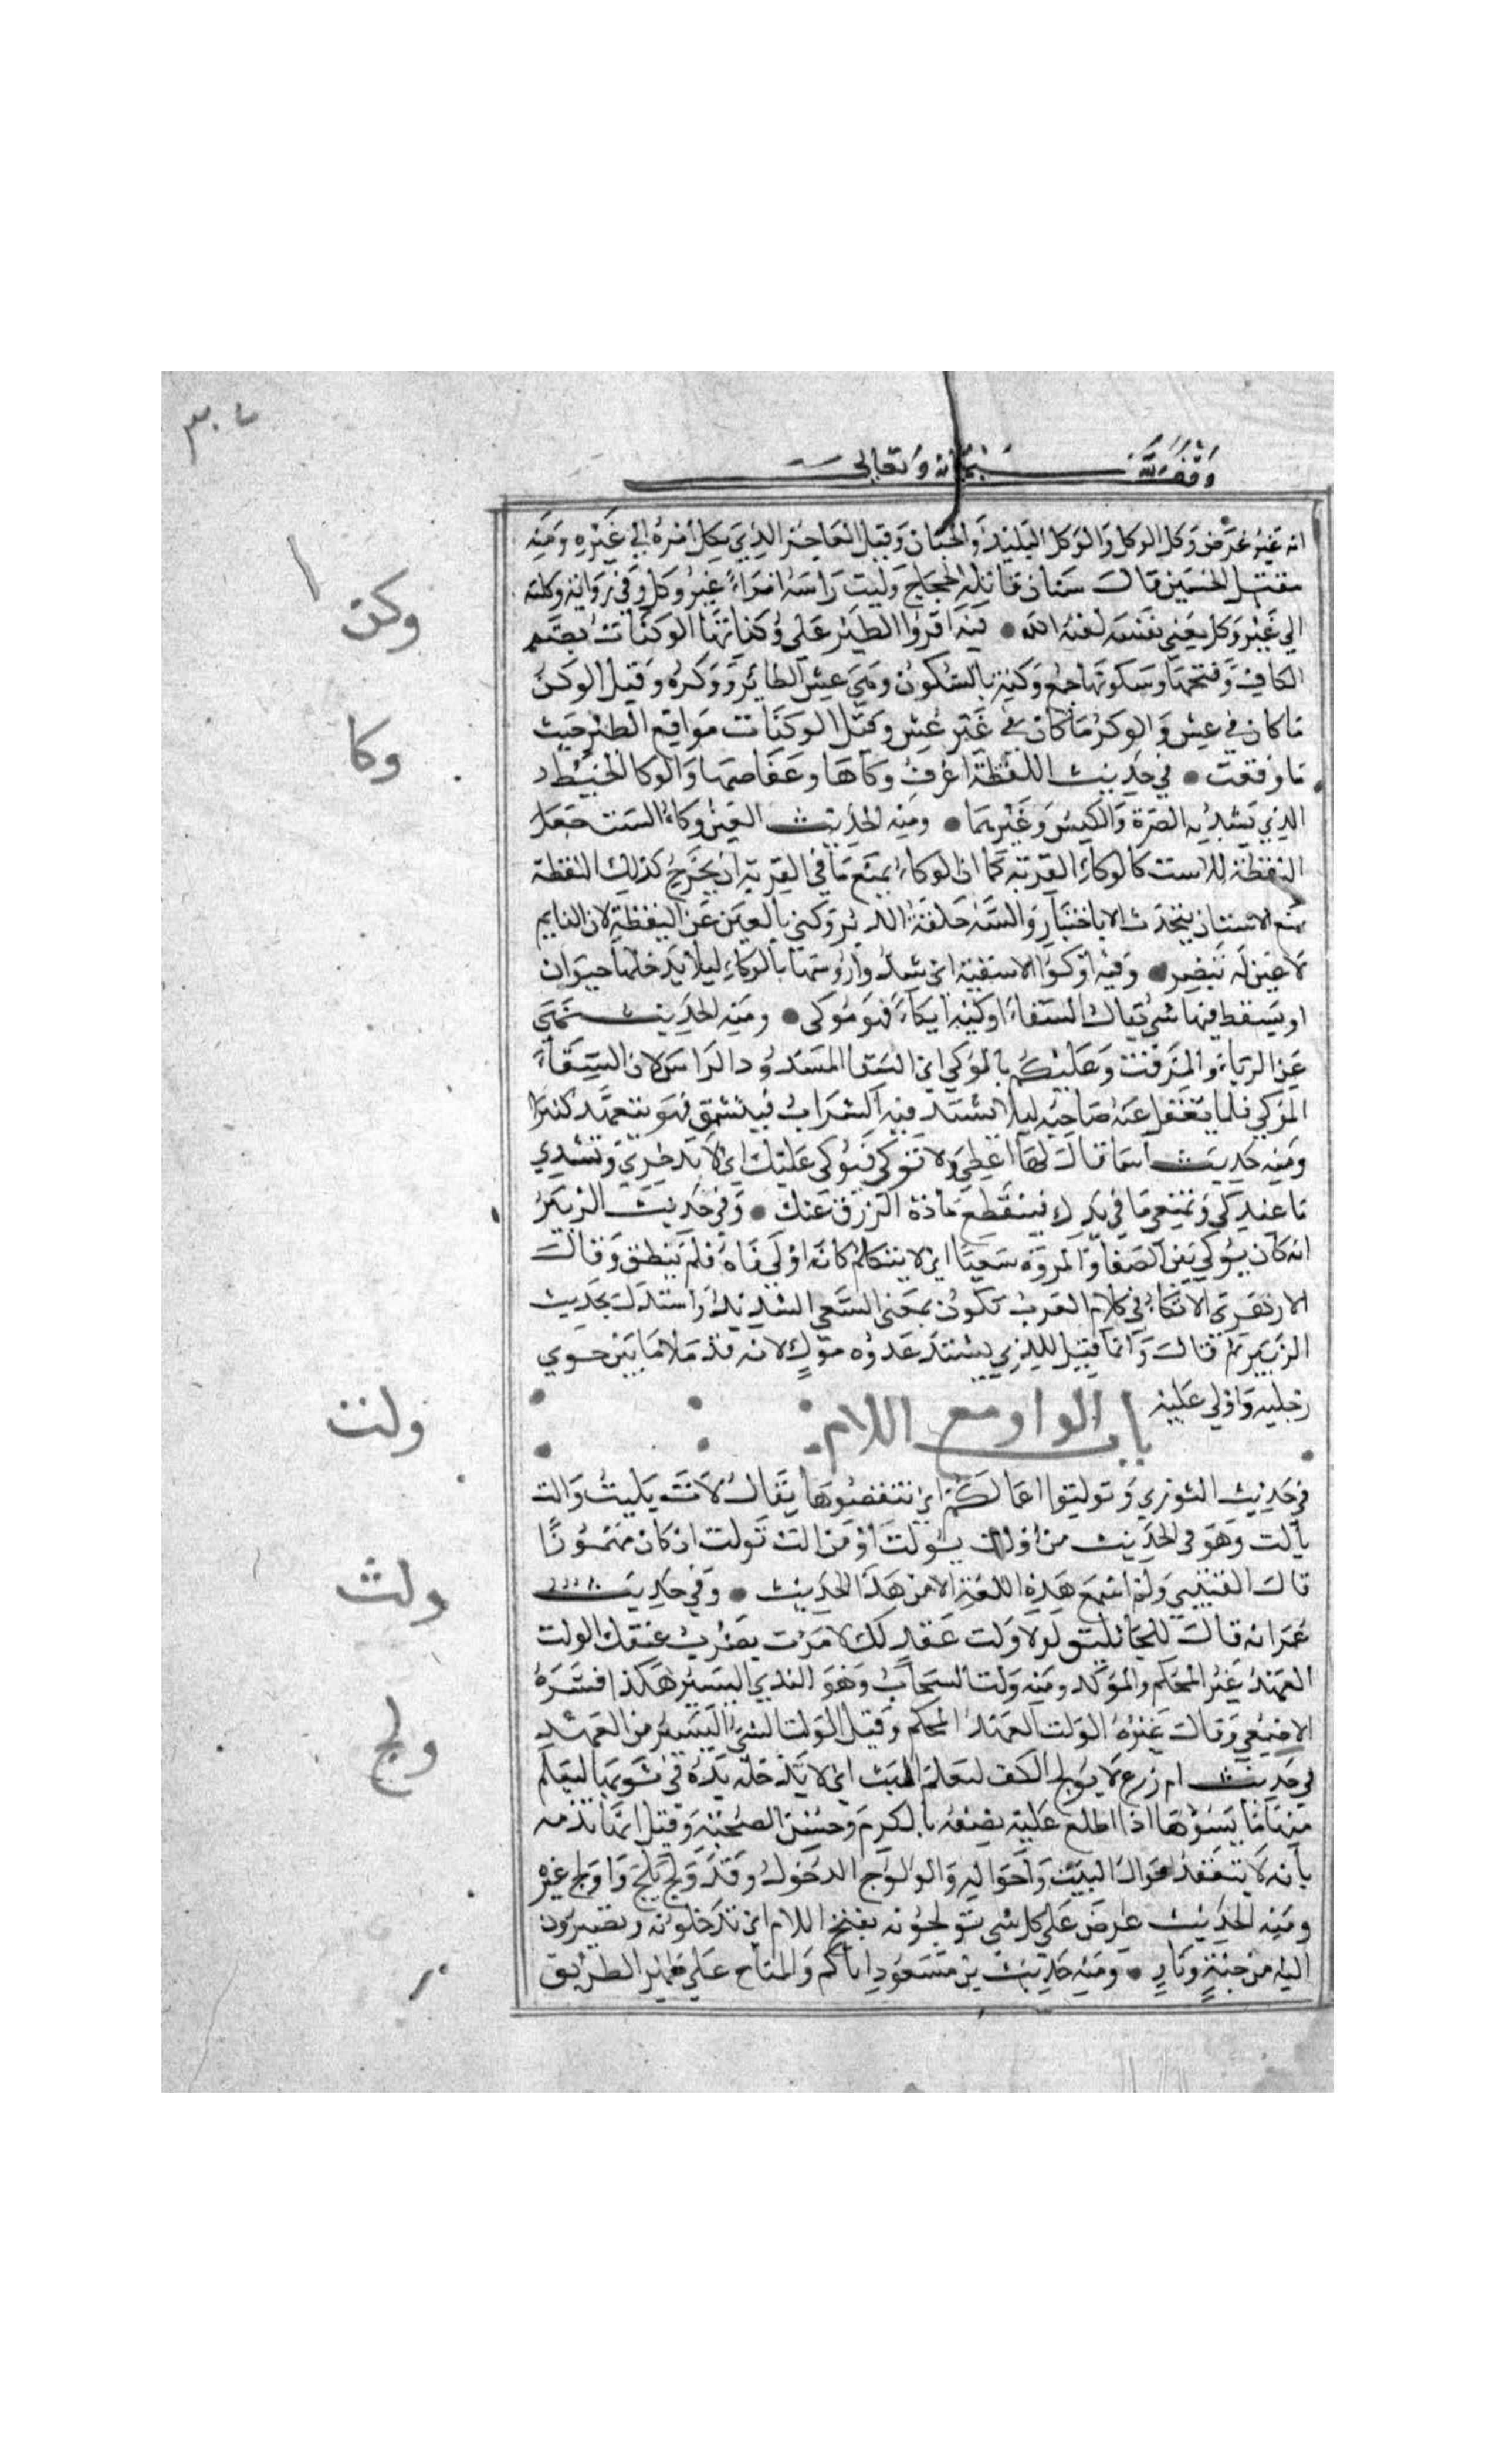 ٣٠٧
وقف لله سبحانه وتعالى
انه غير غرض وكل الوكل والوكل البليد والجبان وقيل العاجز الذي يكل امره الي غيره ومنه
مقتل الحسين قال سنان قاتله للحجاج وليت راسه امراء غير وكل وفي رواية وكلته
الي غير وكل يعني نفسه لعنه الله • فيه اقروا الطير علي وكناتها الوكنات بضم
الكاف وفتحها وسكونها جمع وكنة بالسكون وهي عش الطائر ووكره وقيل الوكن
ما كان في عش والوكر ما كان في غير عش وقيل الوكنات مواقع الطير حيث
ما وقعت • في حديث اللقطة اعرف وكاها وعفاصها والوكا الخيط
الذي تشد به الصرة والكيس وغيرهما • ومنه الحديث العين وكاء السه جعل
اليقظة للاست كالوكاء للقربة كما ان الوكاء يمنع ما في القربة ان يخرج كذلك اليقظة
تمنع الاست ان يتحدث الا باختيار والسه حلقة الدبر وكني بالعين عن اليقظة لان النايم
لا عين له تبصر • وفيه اوكوا الاسقية اي شدوا روسها بالوكاء ليلا يدخلها حيوان
او يسقط فيها شي يقال السقاء اوكيه ايكاء فهو موكى • ومنه الحديث نهي
عن الدباء والمزفت وعليكم بالموكي اي السقا المسدود الراس لان السقاء
الموكي فلما يغفل عنه صاحبه ليلا تشتد فيه الشراب فينشق فهو يتعهد كثيرا
ومنه حديث اسما قال لها اعطي ولا توكي فيوكى عليك اي لا تدخري وتشدي
ما عندكي وتمنعي ما في يدك فينقطع مادة الرزق عنك • وفي حديث الزبير
انه كان يوكي بين الصفا والمروة سعيا اي لا يتكلم كانه اوكي فاه فلم ينطق وقال
الازهري الاتكاء في كلام العرب تكون بمعني السعي الشديد واستدل بحديث
الزبير ثم قال وانما قيل للذي يشتد عدوه موك لانه قد ملا ما بين حوي
رجليه واوكي عليه
باب الواو مع اللام
في حديث الشوري وتولتوا اعمالكم اي تنقصوها يقال لات يليت والت
يالت وهو في الحديث من اولت يولت او من الت تولت ان كان مهموزا
قال القتيبي ولم اسمع هذه اللغة الا من هذا الحديث • وفي حديث
عمر انه قال للجاثليق لولا ولت عقد لك لامرت بضرب عنقك الولت
العهد غير المحكم والموكد ومنه ولت السحاب وهو الندي اليسير هكذا فسره
الاصمعي وقال غيره الولت العهد المحكم وقيل الولت الشي اليسير من العهد
في حديث ام زرع لا يولج الكف ليعلم البث اي لا يدخل يده في ثوبها ليعلم
منها ما يسوها اذا اطلع عليه تصفه بالكرم وحسن الصحبة وقيل انها تذمه
بانه لا يتفقد احوال البيت واحواله والولوج الدخول وقد ولج يلج واولج غيره
ومنه الحديث عرض علي كل شي تولجونه بفتح اللام اي تدخلونه وتصيرون
اليه من جنة ونار • ومنه حديث بن مسعود اياكم والمناخ علي ظهر الطريق
وكن
وكا
ولت
ولث
ولج